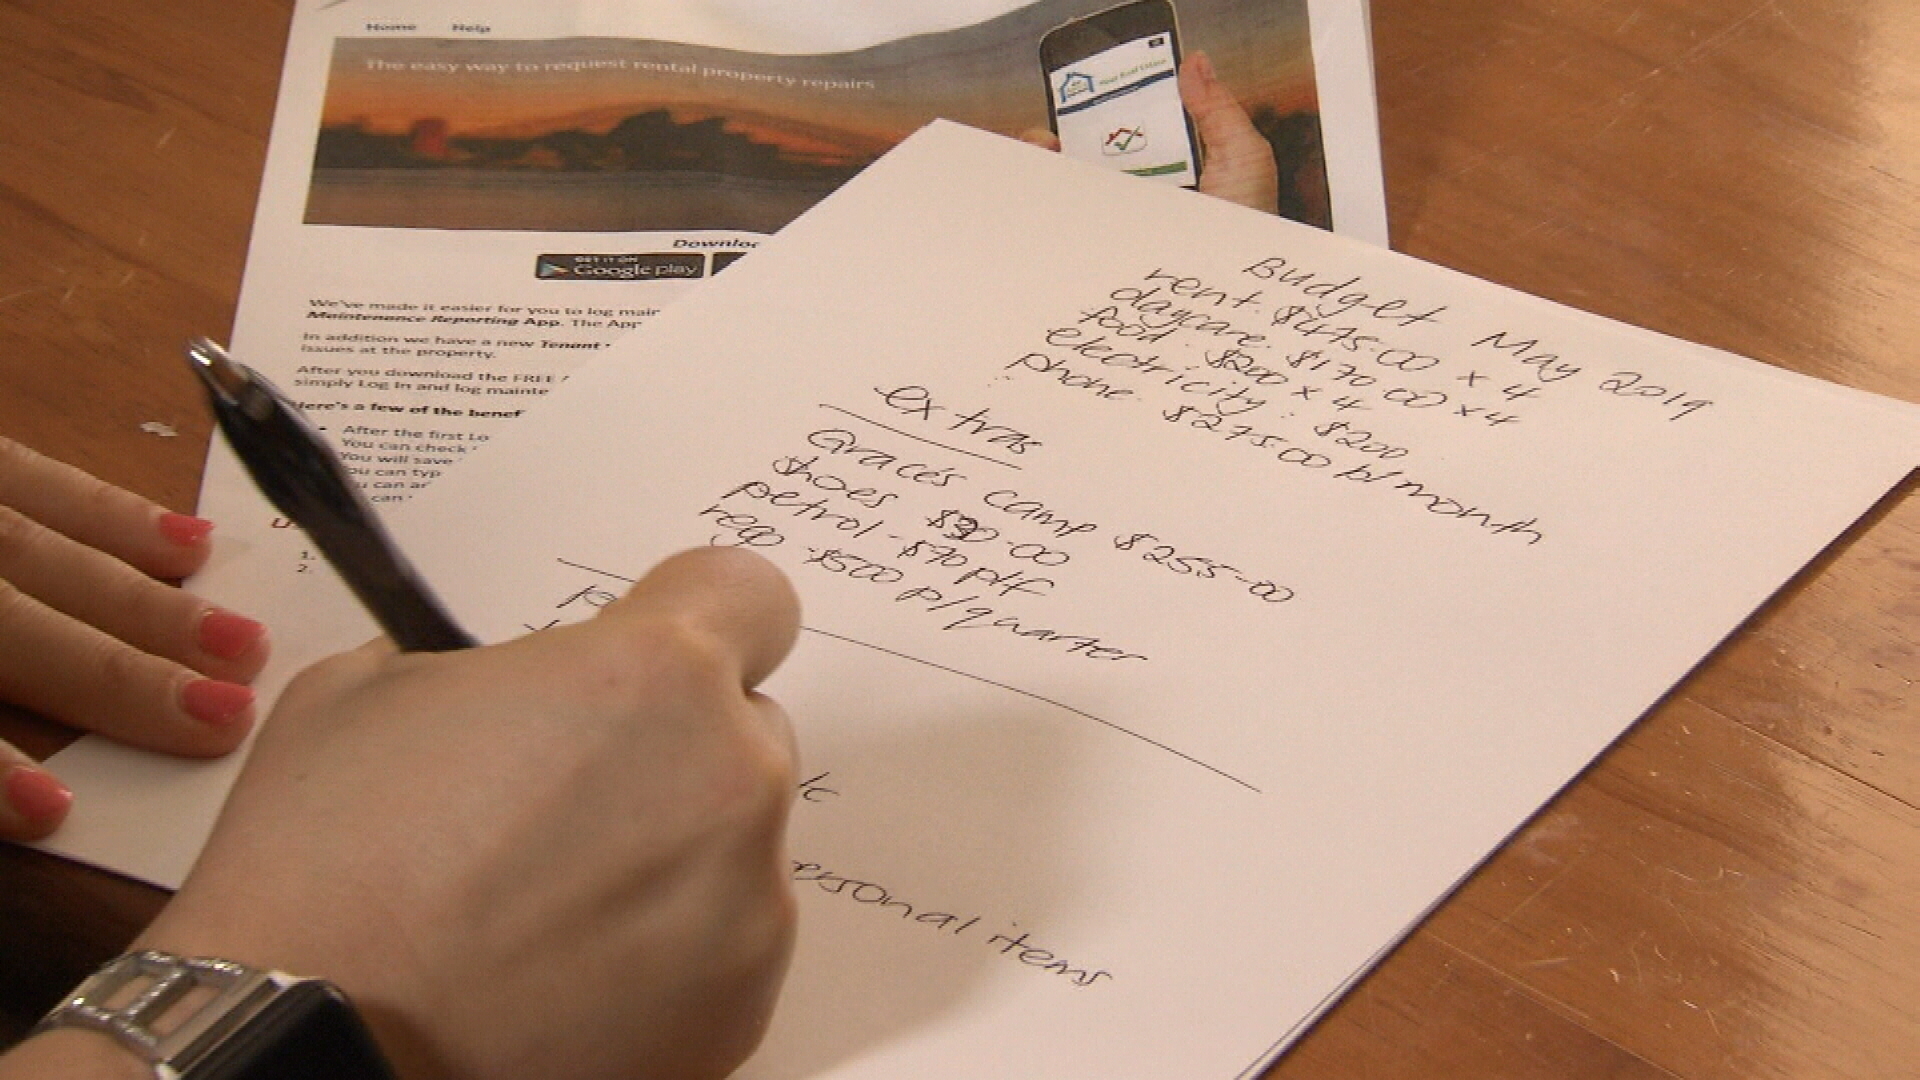 Home Help
The easy way to request rental property repairs
Downloa
GET IT ON
Google play
We've made it easier for you to log main
Maintenance Reporting App. The App
In addition we have a new Tenant
issues at the property.
After you download the FREE
simply Log In and log mainte
Here's a few of the benef
• After the first Lo
You can check
You will save
You can typ
can
1.
2.
Budget May 2019
rent. $475.00 x 4
daycare. $170.00 x 4
food. $200 x 4
electricity: $200
phone. $275.00 p/month
extras
Grace's camp $255-00
shoes $30-00
petrol - $70 p/f
rego - $500 p/quarter
ersonal items